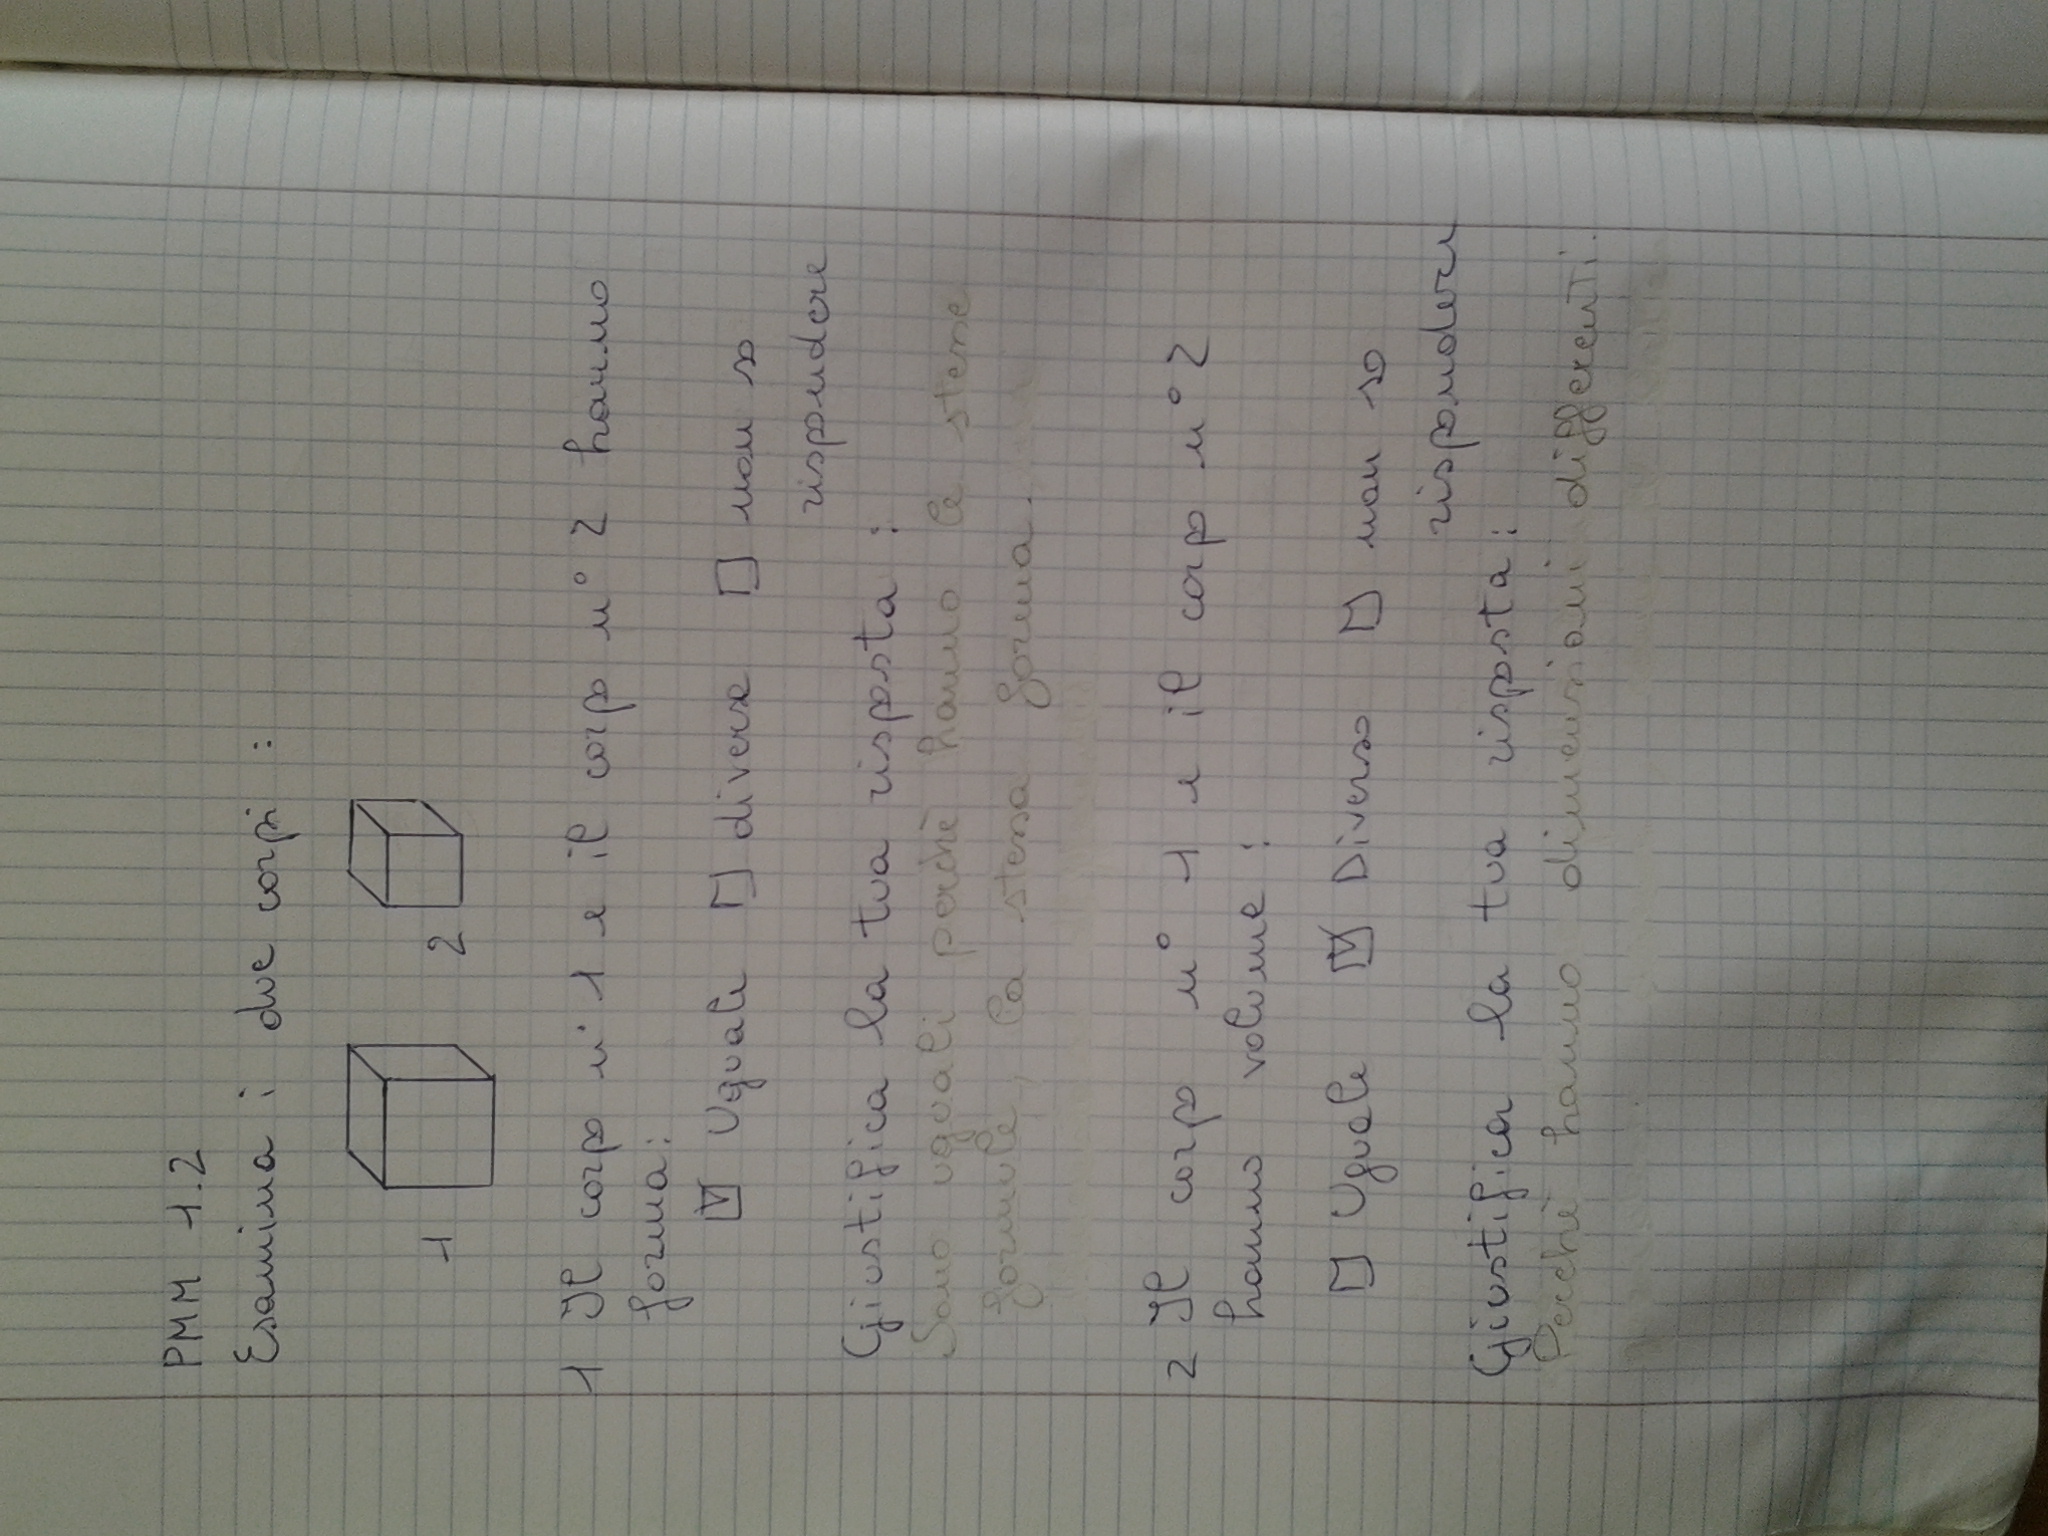 PMM 1.2
Esamina i due corpi :
1 2
1 Il corpo n° 1 e il corpo n° 2 hanno
forma:
☑ Uguale ☐ diversa ☐ non so
rispondere
Giustifica la tua risposta :
Sono uguali perchè hanno le stesse
formule, la stessa forma.
2 Il corpo n° 1 e il corpo n° 2
hanno volume :
☐ Uguale ☑ Diverso ☐ non so
rispondere
Giustifica la tua risposta :
Perchè hanno dimensioni differenti.